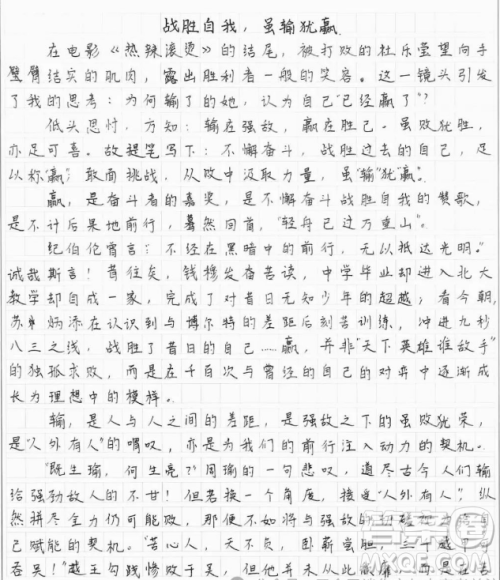 战胜自我，虽输犹赢
在电影《热辣滚烫》的结尾，被打败的杜乐莹望向手
臂结实的肌肉，露出胜利者一般的笑容。这一镜头引发
了我的思考：为何输了的她，认为自己"已经赢了"？
低头思忖，方知：输在强敌，赢在胜己。虽败犹胜，
亦足可喜。故提笔写下：不懈奋斗，战胜过去的自己，足
以称"赢"；敢面挑战，从败中汲取力量，虽"输"犹"赢"。
赢，是奋斗者的嘉奖，是不懈奋斗战胜自我的赞歌，
是不计后果地前行，蓦然回首，"轻舟已过万重山"。
纪伯伦有言："不经在黑暗中的前行，无以抵达光明。"
诚哉斯言！昔往矣，钱穆发奋苦读，中学毕业却进入北大
教学却自成一家，完成了对昔日无知少年的超越；看今朝，
苏炳添在认识到与博尔特的差距后刻苦训练，冲进九秒
八三之线，战胜了昔日的自己……赢，并非"天下英雄谁敌手"
的独孤求败，而是在千百次与曾经的自己的对弈中逐渐成
长为理想中的模样。
输，是人与人之间的差距，是强敌之下的虽败犹荣，
是"人外有人"的喟叹，亦是为我们的前行注入动力的契机。
"既生瑜，何生亮？"周瑜的一句悲叹，道尽古今人们输
给强劲敌人的不甘！但若换一个角度，接受"人外有人"，纵
然拼尽全力仍可能败，那便不如将与强敌的
己赋能的契机。"苦心人，天不负，卧薪尝胆，三千越甲
吞吴！"越王勾践惨败于吴，但他并未从此